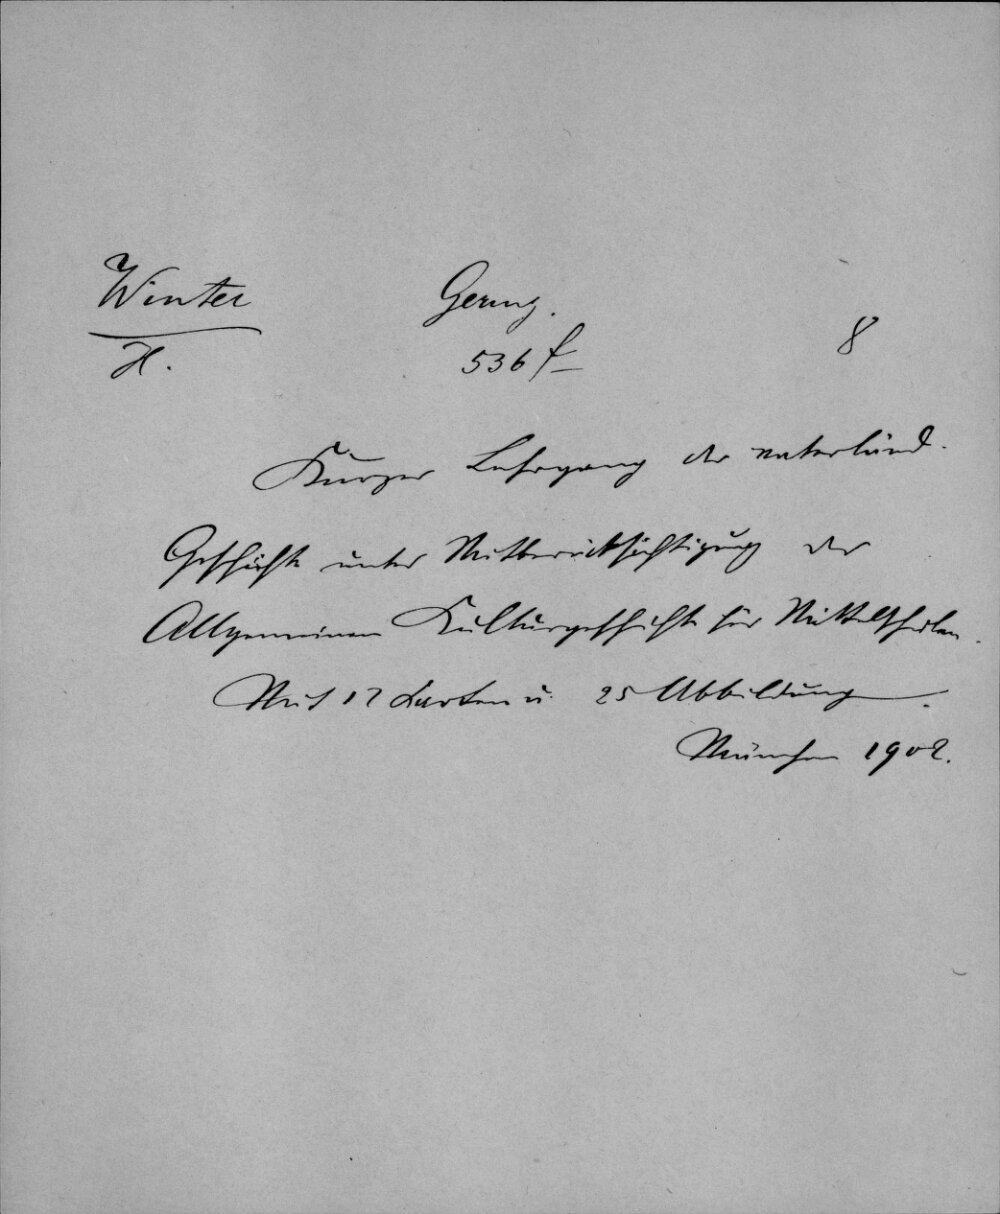 Winter
H.
Germ.
536 f
8
Kurzer Lehrgang der vaterländ.
Geschichte unter Mitberücksichtigung der
Allgemeinen Kulturgeschichte für Mittelschulen.
Mit 17 Karten u. 25 Abbildung.
München 1902.